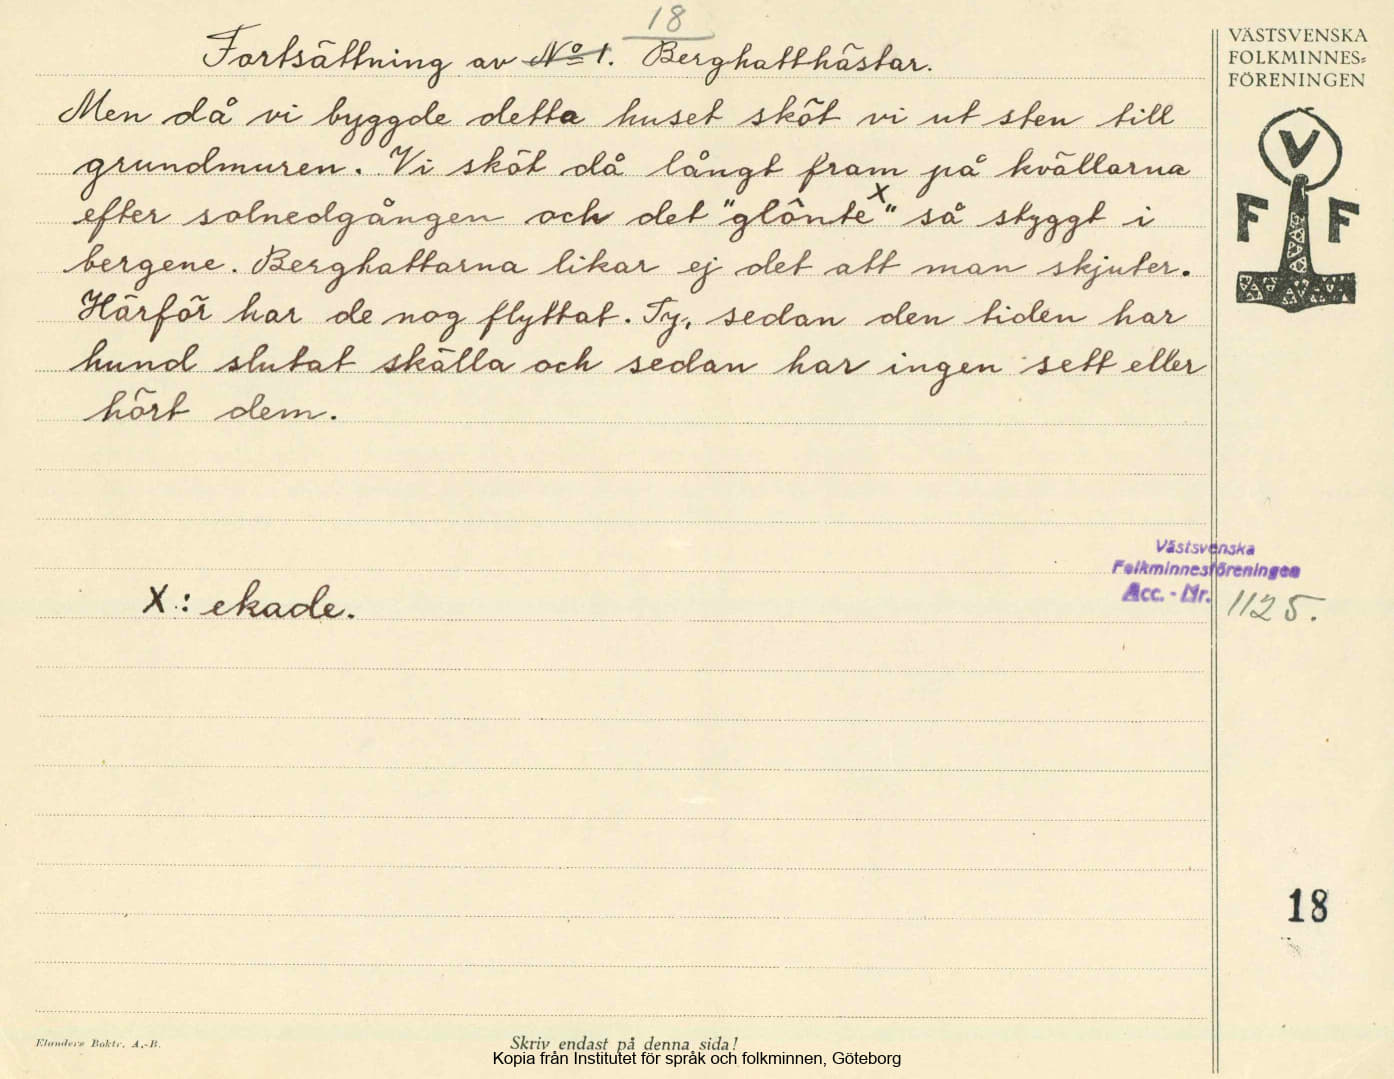 18
Fortsättning av N:o 1. Berghatthästar.
Men då vi byggde detta huset sköt vi ut sten till
grundmuren. Vi sköt då långt fram på kvällarna
efter solnedgången och det "glönte x" så styggt i
bergene. Berghattarna likar ej det att man skjuter.
Härför har de nog flyttat. Ty, sedan den tiden har
hund slutat skälla och sedan har ingen sett eller
hört dem.
X: ekade.
VÄSTSVENSKA
FOLKMINNES=
FÖRENINGEN
V
F F
Västsvenska
Folkminnesföreningen
Acc. - Nr. 1125.
18
Elanders Boktr. A.-B.
Skriv endast på denna sida!
Kopia från Institutet för språk och folkminnen, Göteborg